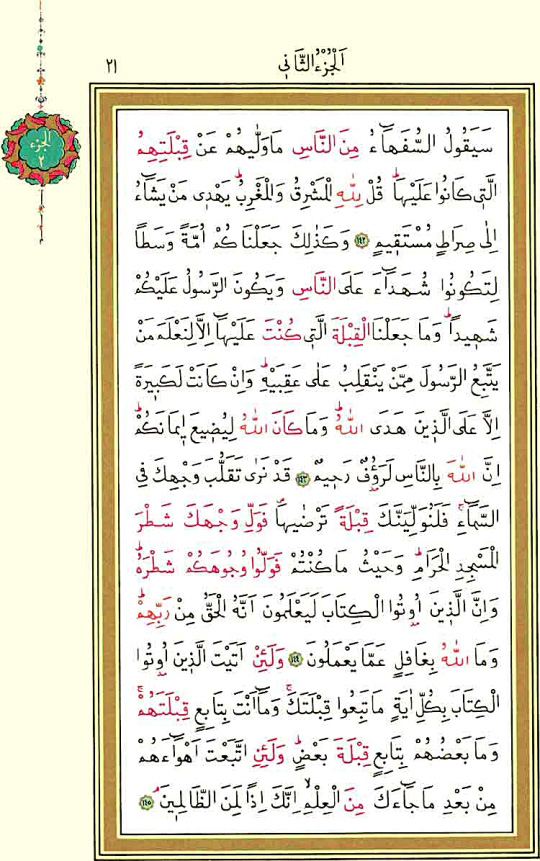 اَلْجُزْءُ الثَّانٖي
٢١
الجزء
٢
سَيَقُولُ السُّفَهَٓاءُ مِنَ النَّاسِ مَا وَلّٰيهُمْ عَنْ قِبْلَتِهِمُ
الَّتٖي كَانُوا عَلَيْهَاۜ قُلْ لِلّٰهِ الْمَشْرِقُ وَالْمَغْرِبُۜ يَهْدٖي مَنْ يَشَٓاءُ
اِلٰى صِرَاطٍ مُسْتَقٖيمٍ ﴿١٤٢﴾ وَكَذٰلِكَ جَعَلْنَاكُمْ اُمَّةً وَسَطًا
لِتَكُونُوا شُهَدَٓاءَ عَلَى النَّاسِ وَيَكُونَ الرَّسُولُ عَلَيْكُمْ
شَهٖيدًاۜ وَمَا جَعَلْنَا الْقِبْلَةَ الَّتٖي كُنْتَ عَلَيْهَٓا اِلَّا لِنَعْلَمَ مَنْ
يَتَّبِعُ الرَّسُولَ مِمَّنْ يَنْقَلِبُ عَلٰى عَقِبَيْهِۜ وَاِنْ كَانَتْ لَكَبٖيرَةً
اِلَّا عَلَى الَّذٖينَ هَدَى اللّٰهُۜ وَمَا كَانَ اللّٰهُ لِيُضٖيعَ اٖيمَانَكُمْۜ
اِنَّ اللّٰهَ بِالنَّاسِ لَرَؤُ۫فٌ رَحٖيمٌ ﴿١٤٣﴾ قَدْ نَرٰى تَقَلُّبَ وَجْهِكَ فِي
السَّمَٓاءِۚ فَلَنُوَلِّيَنَّكَ قِبْلَةً تَرْضٰيهَاۖ فَوَلِّ وَجْهَكَ شَطْرَ
الْمَسْجِدِ الْحَرَامِۜ وَحَيْثُ مَا كُنْتُمْ فَوَلُّوا وُجُوهَكُمْ شَطْرَهُۜ
وَاِنَّ الَّذٖينَ اُو۫تُوا الْكِتَابَ لَيَعْلَمُونَ اَنَّهُ الْحَقُّ مِنْ رَبِّهِمْۜ
وَمَا اللّٰهُ بِغَافِلٍ عَمَّا يَعْمَلُونَ ﴿١٤٤﴾ وَلَئِنْ اَتَيْتَ الَّذٖينَ اُو۫تُوا
الْكِتَابَ بِكُلِّ اٰيَةٍ مَا تَبِعُوا قِبْلَتَكَۚ وَمَٓا اَنْتَ بِتَابِعٍ قِبْلَتَهُمْۚ
وَمَا بَعْضُهُمْ بِتَابِعٍ قِبْلَةَ بَعْضٍۜ وَلَئِنِ اتَّبَعْتَ اَهْوَٓاءَهُمْ
مِنْ بَعْدِ مَا جَٓاءَكَ مِنَ الْعِلْمِۙ اِنَّكَ اِذًا لَمِنَ الظَّالِمٖينَۢ ﴿١٤٥﴾